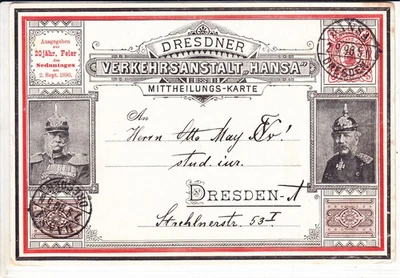 Ausgegeben
zur
20jähr. Feier
des
Sedantages
am
2. Sept. 1890.
DRESDNER
VERKEHRSANSTALT „HANSA“
MITTHEILUNGS-KARTE
HANSA
DRESDEN
An
Herrn Otto May Fr!
stud. iur.
DRESDEN-A
Strehlnerstr. 53 I